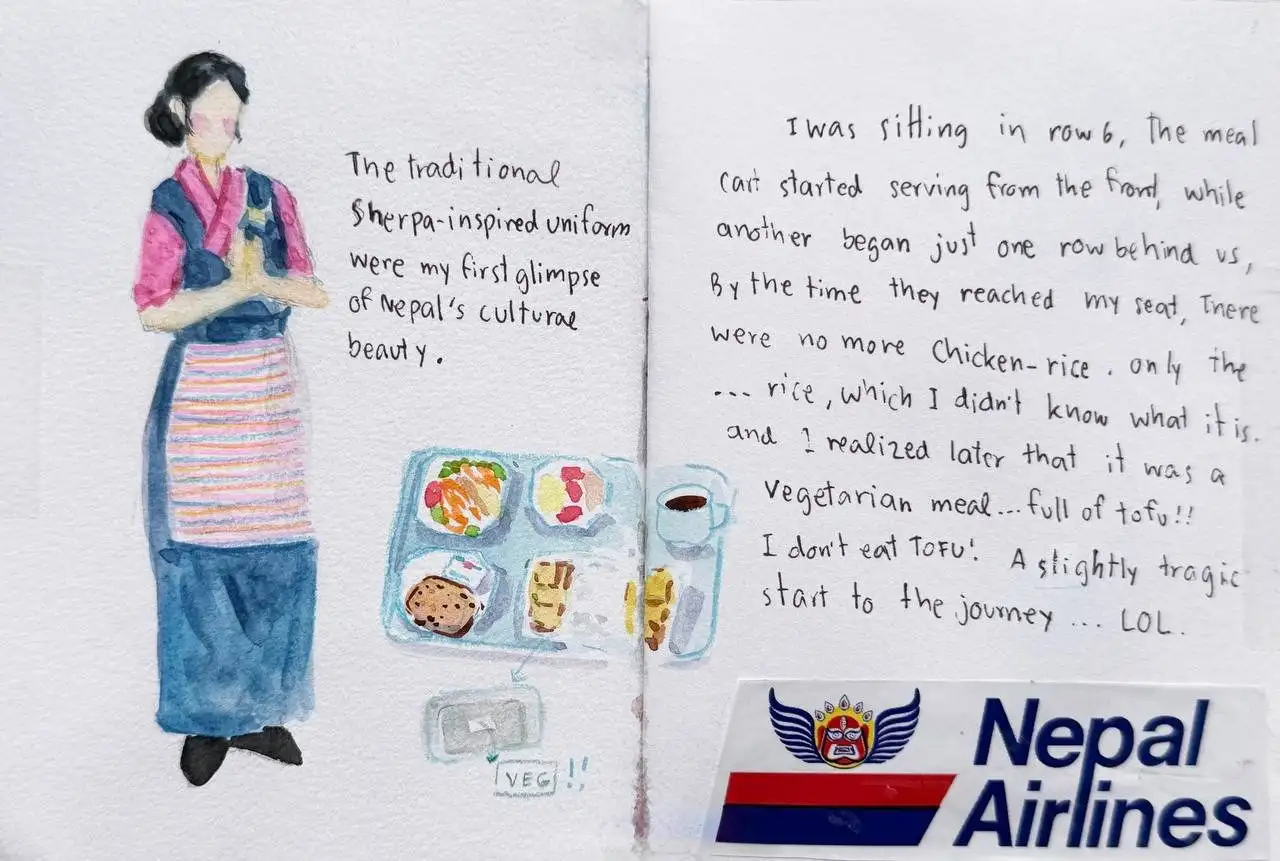 The traditional
Sherpa-inspired uniform
were my first glimpse
of Nepal's cultural
beauty.
VEG !!
I was sitting in row 6, The meal
cart started serving from the front, while
another began just one row behind us,
By the time they reached my seat, There
were no more chicken-rice. only the
... rice, which I didn't know what it is.
and I realized later that it was a
vegetarian meal...full of tofu!!
I don't eat TOFU! A slightly tragic
start to the journey ... LOL.
Nepal
Airlines